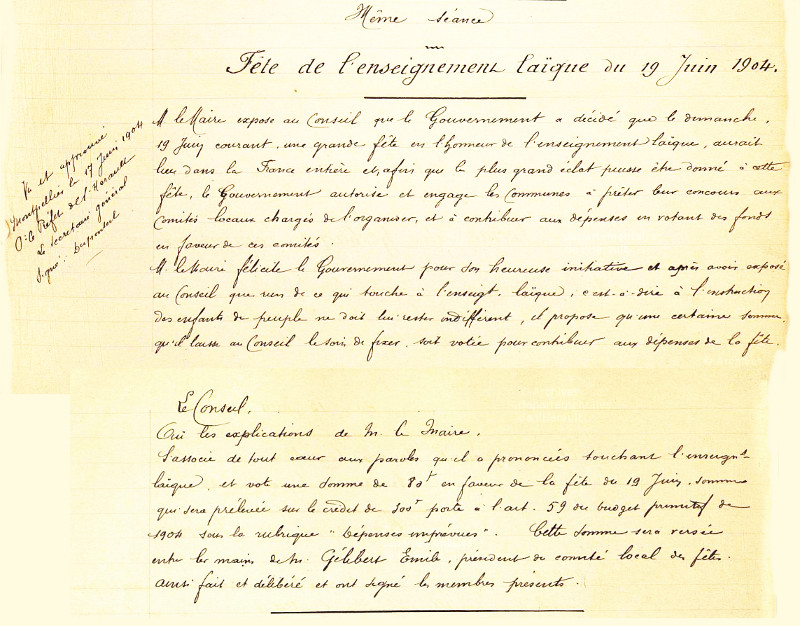 Même séance
Fête de l'enseignement laïque du 19 Juin 1904.
Vu et approuvé
Montpellier le 17 Juin 1904
Le Préfet de l'Hérault
Le Secrétaire général
Signé:
M. le Maire expose au Conseil que le Gouvernement a décidé que le dimanche,
19 Juin courant, une grande fête en l'honneur de l'enseignement laïque, aurait
lieu dans la France entière et, afin que le plus grand éclat puisse être donné à cette
fête, le Gouvernement autorise et engage les Communes à prêter leur concours aux
Comités locaux chargés de l'organiser, et à contribuer aux dépenses en votant des fonds
en faveur de ces comités.
M. le Maire félicite le Gouvernement pour son heureuse initiative et après avoir exposé
au Conseil que rien de ce qui touche à l'enseigt. laïque, c'est-à-dire à l'instruction
des enfants du peuple ne doit lui rester indifférent, il propose qu'une certaine somme,
qu'il laisse au Conseil le soin de fixer, soit votée pour contribuer aux dépenses de la fête.
Le Conseil,
Ouï les explications de M. le Maire,
S'associe de tout cœur aux paroles qu'il a prononcées touchant l'enseignt
laïque, et vote une somme de 80f en faveur de la fête du 19 Juin, somme
qui sera prélevée sur le crédit de 300f porté à l'art. 59 du budget primitif de
1904 sous la rubrique "Dépenses imprévues". Cette somme sera versée
entre les mains de M. Gélibert Emile, président du comité local des fêtes.
Ainsi fait et délibéré et ont signé les membres présents.